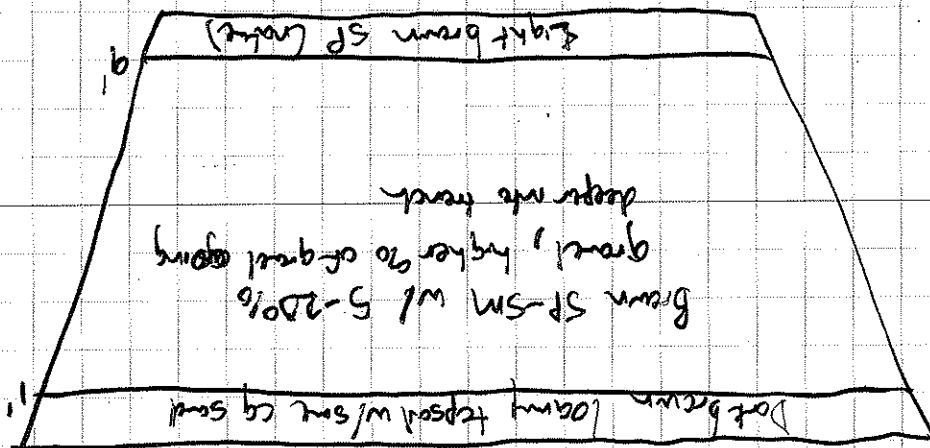 Dark brown loamy topsoil w/ some cg sand
1'
Brown SP-SM w/ 5-20%
gravel, higher % of gravel going
deeper into trench
9'
Light brown SP (native)